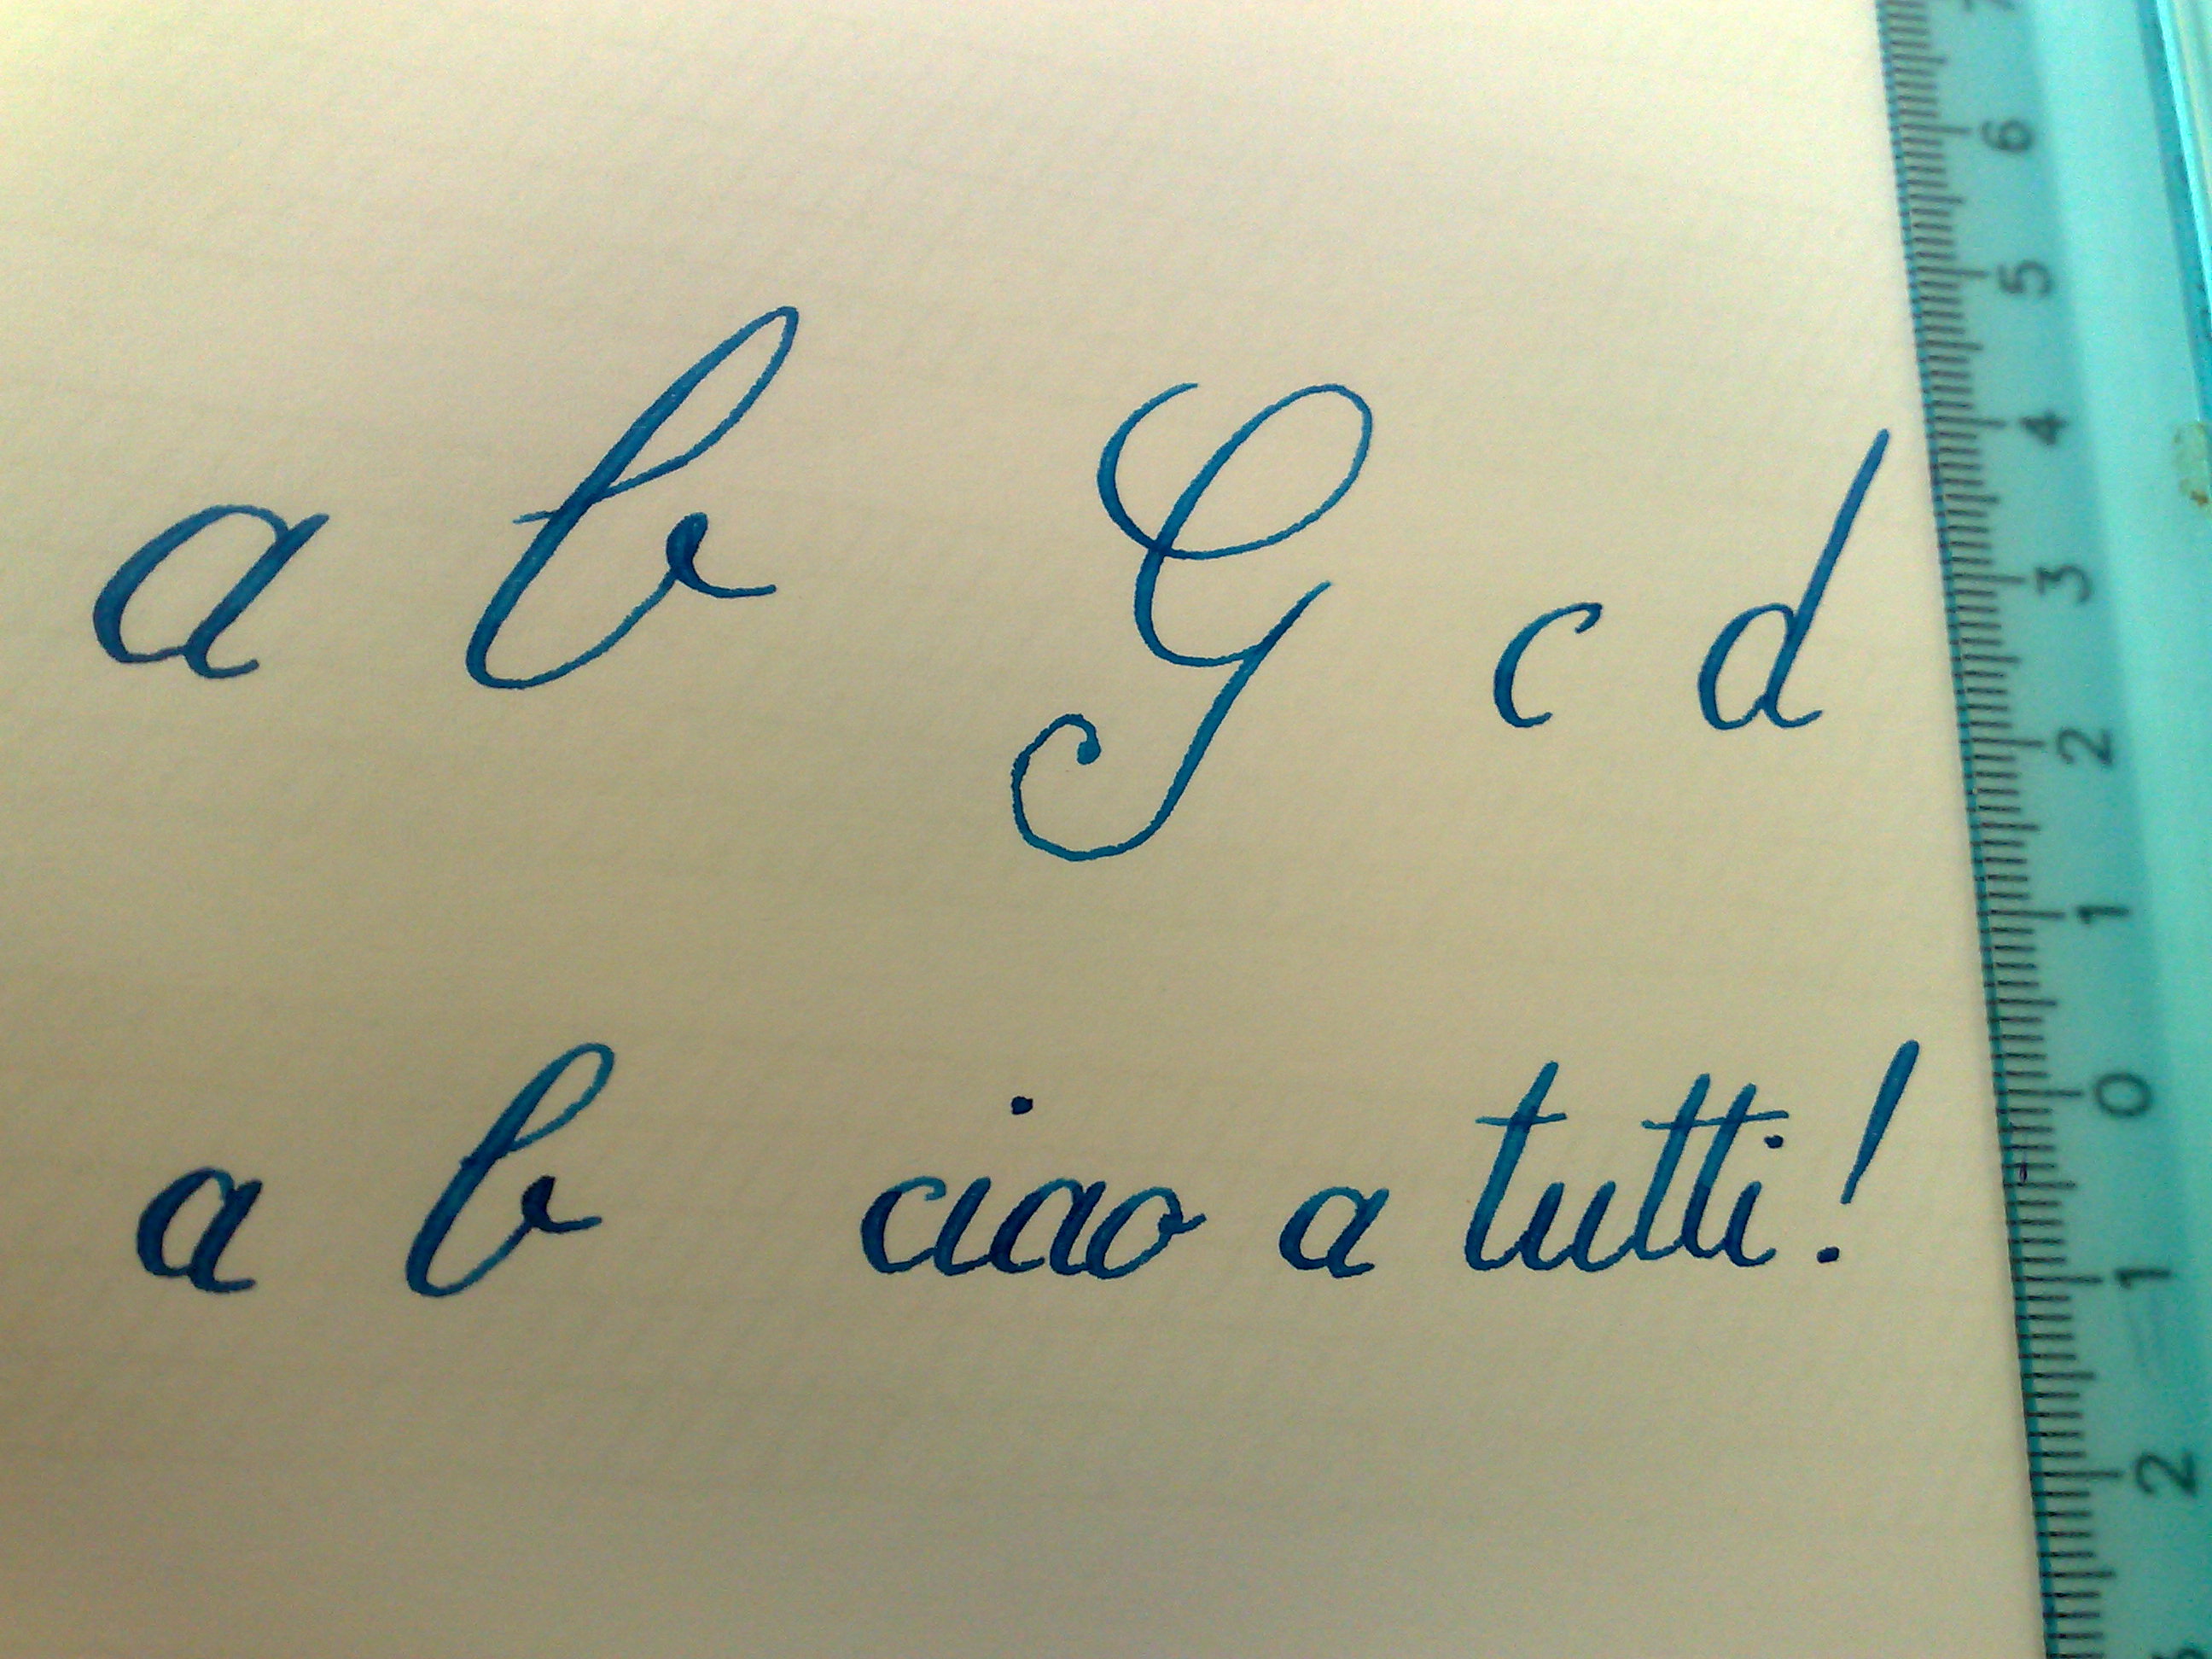 a b G c d
a b ciao a tutti!
7 6 5 4 3 2 1 0 1 2